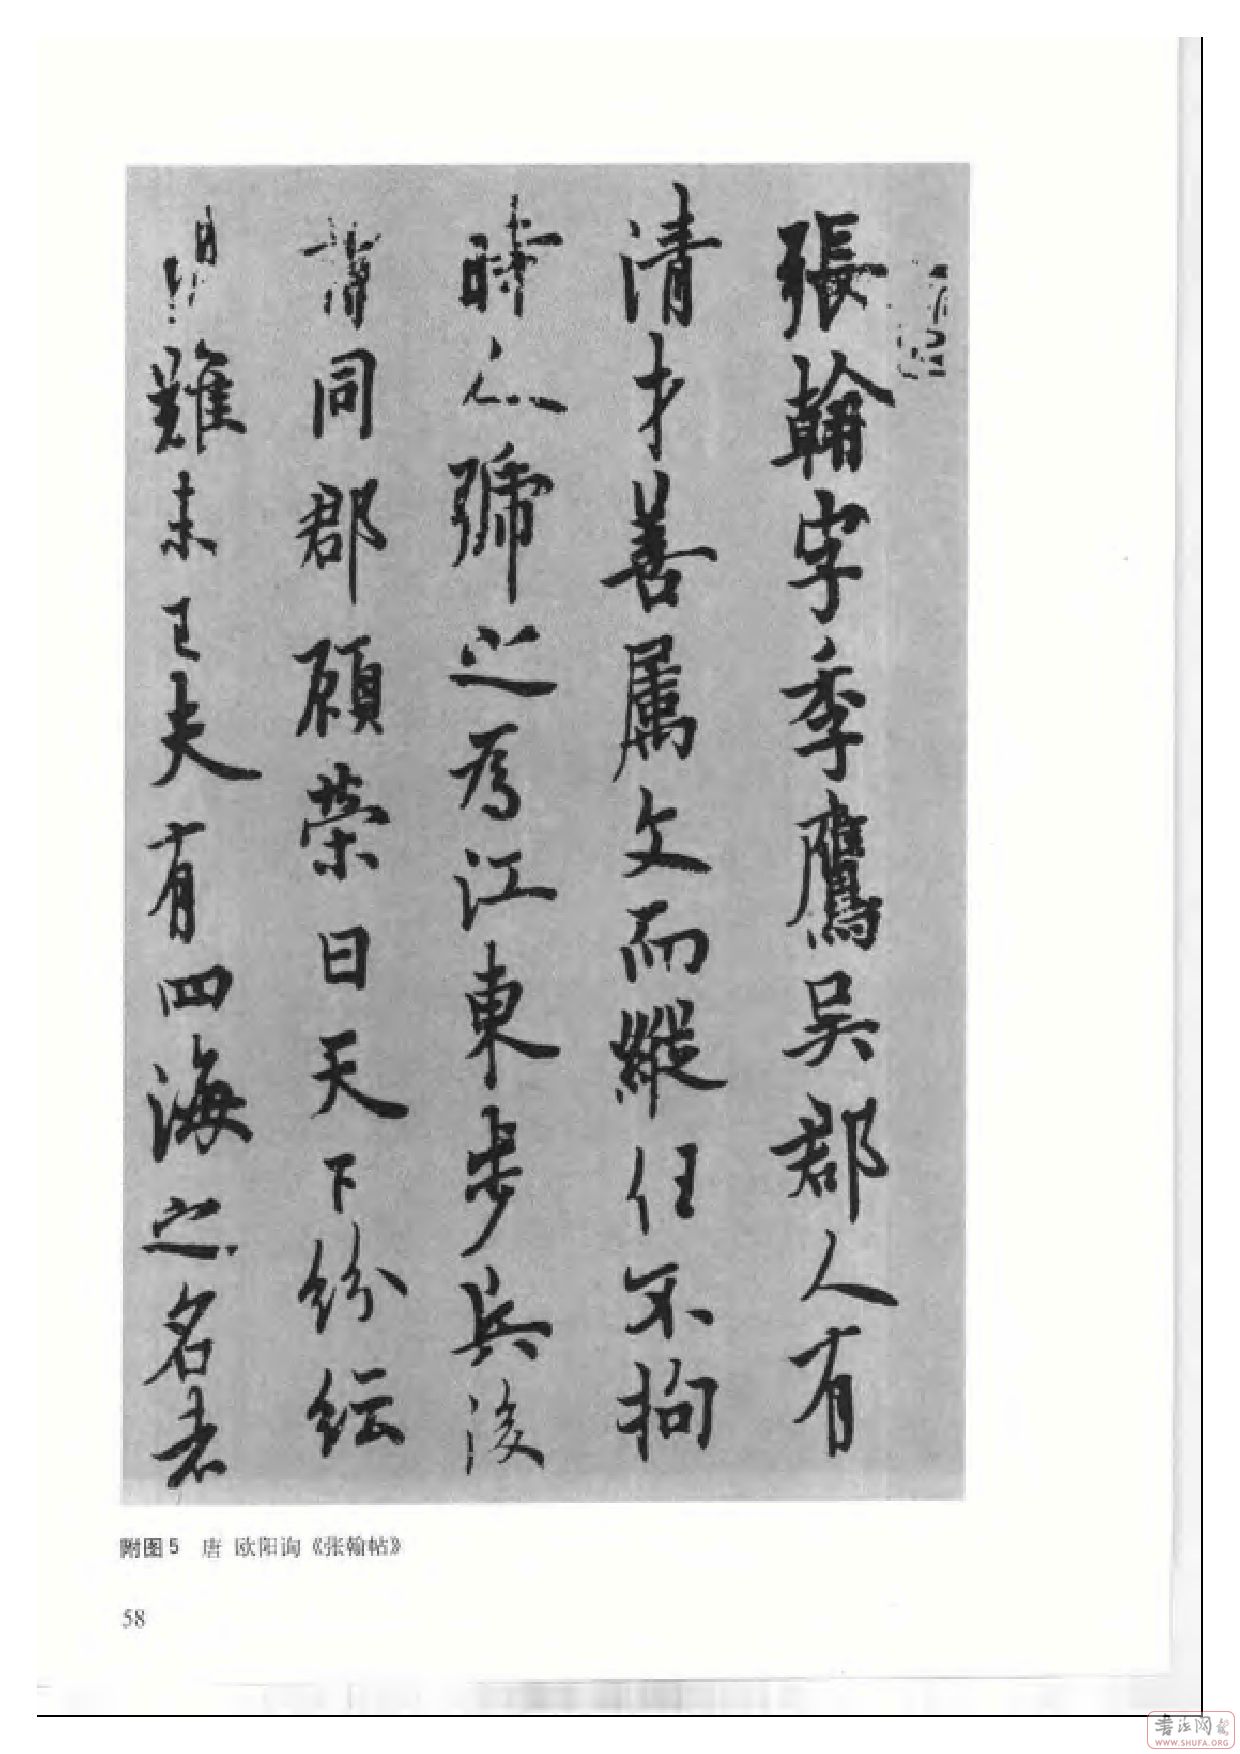 張翰字季鷹吳郡人有
清才善属文而縱任不拘
時人號之為江東步兵後
謂同郡顧榮曰天下紛紜
難未已夫有四海之名者
附图5 唐 欧阳询《张翰帖》
58
书法网
WWW.SHUFA.ORG